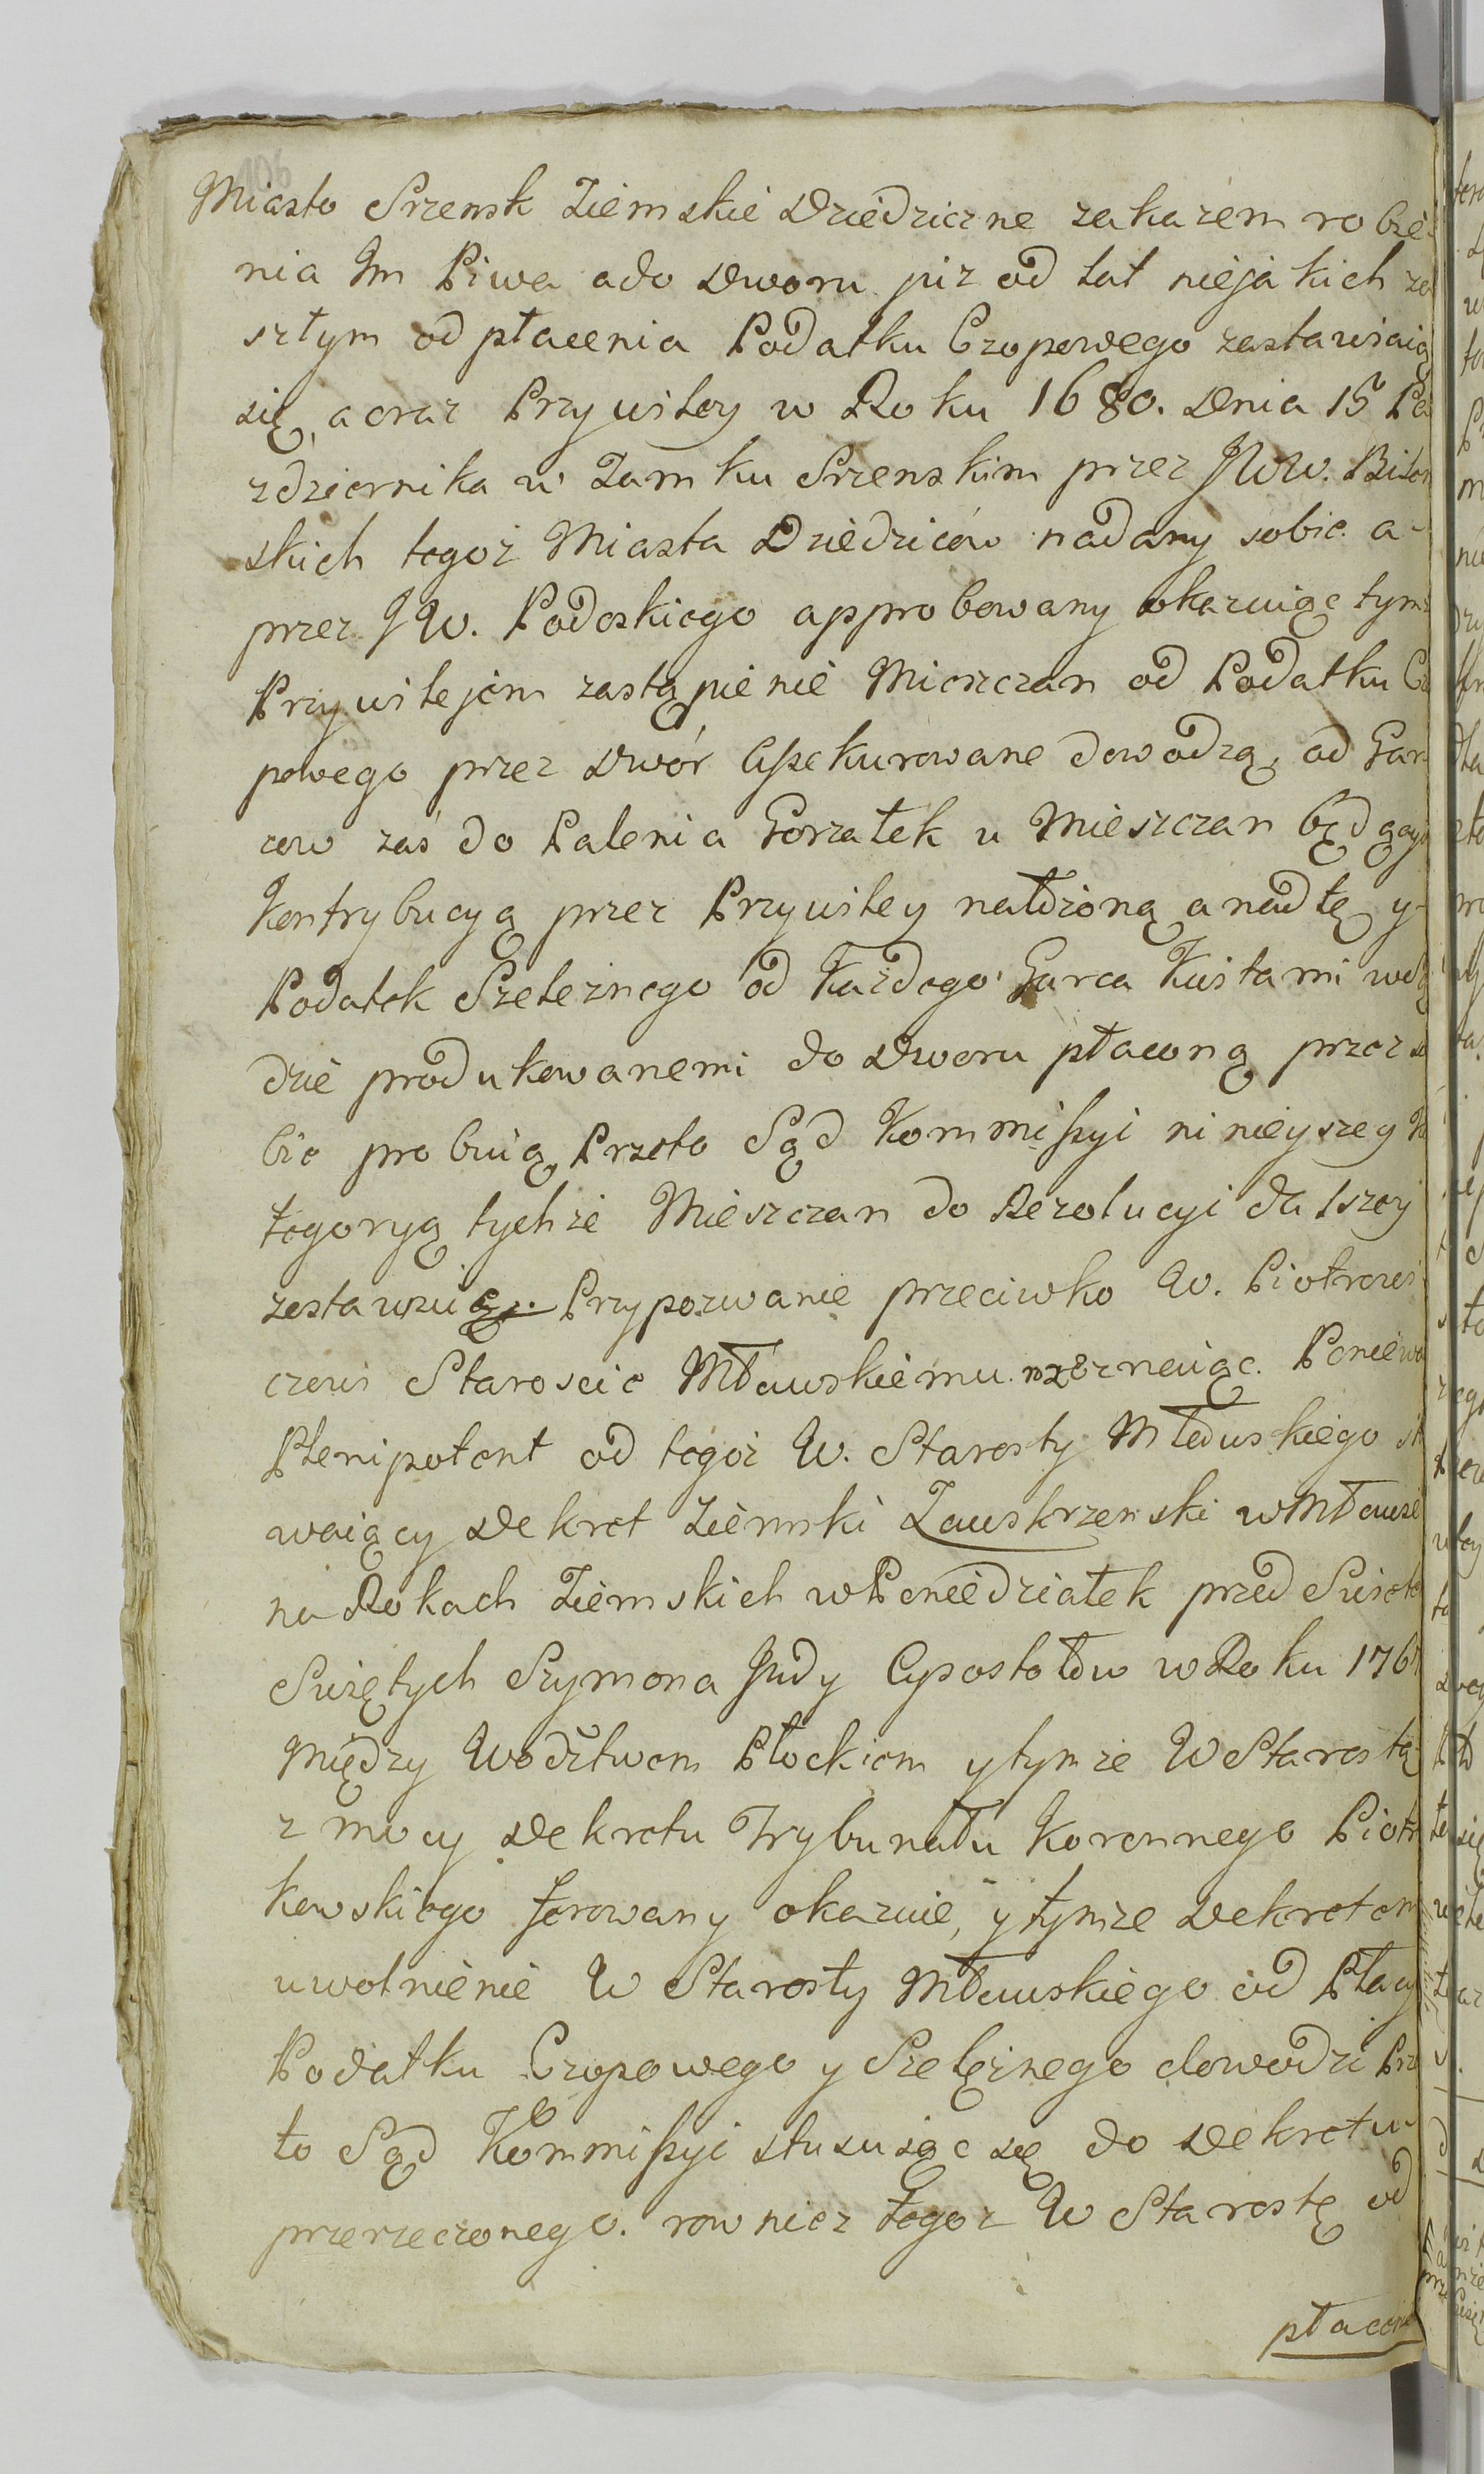 106
Miasto Srzensk Ziemskie Dziedziczne zakazem robie
nia Im Piwa a do Dworu juz od lat niejakich za
szłym od płacenia Podatku Czopowego zastawiaią
się, a oraz Przywiley w Roku 1680. Dnia 15 Pa
zdziernika w Zamku Srzenskim przez JWW.
skich tegoż Miasta Dziedziców nadany sobie a-
przez JW. Podoskiego approbowany okazuiąc tym
Przywilejem zastąpienie Mieszczan od Podatku Czo
powego przez Dwór Assekurowane dowodzą, od Gar
cow zaś do Palenia Gorzałek u Mieszczan będący
Kontrybucyą przez Przywiley nałożoną a nad tę y-
Podatek Szelężnego od Każdego Garca Kwitami
dzie produkowanemi do Dworu płaconą przez so
bie probuią Przeto Sąd Kommissyi ninieyszey Ka
tegoryą tychże Mieszczan do Rezolucyi dalszey
zostawuią. Przypozwanie przeciwko W. Piotrowi
czowi Staroscie Mławskiemu Poniewa
Plenipotent od tegoż W. Starosty Mławskiego st
waiący Dekret Ziemski Zawskrzenski w Mławie
na Rokach Ziemskich w Poniedziałek przed Swięte
Swiętych Szymona Judy Apostołów w Roku 176
Między Wodztwem Płockiem y tymże W Starostą
z mocy Dekretu Trybunału Koronnego Piotr
kowskiego ferowany okazuie, y tymże Dekretem
uwolnienie W Starosty Mławskiego od Płacy
Podatku Czopowego y Szelężnego dowodzi Prze
to Sąd Kommissyi stusuiąc się do Dekretu
przerzeczonego. rownież tegoż W Starostę od
płaceni